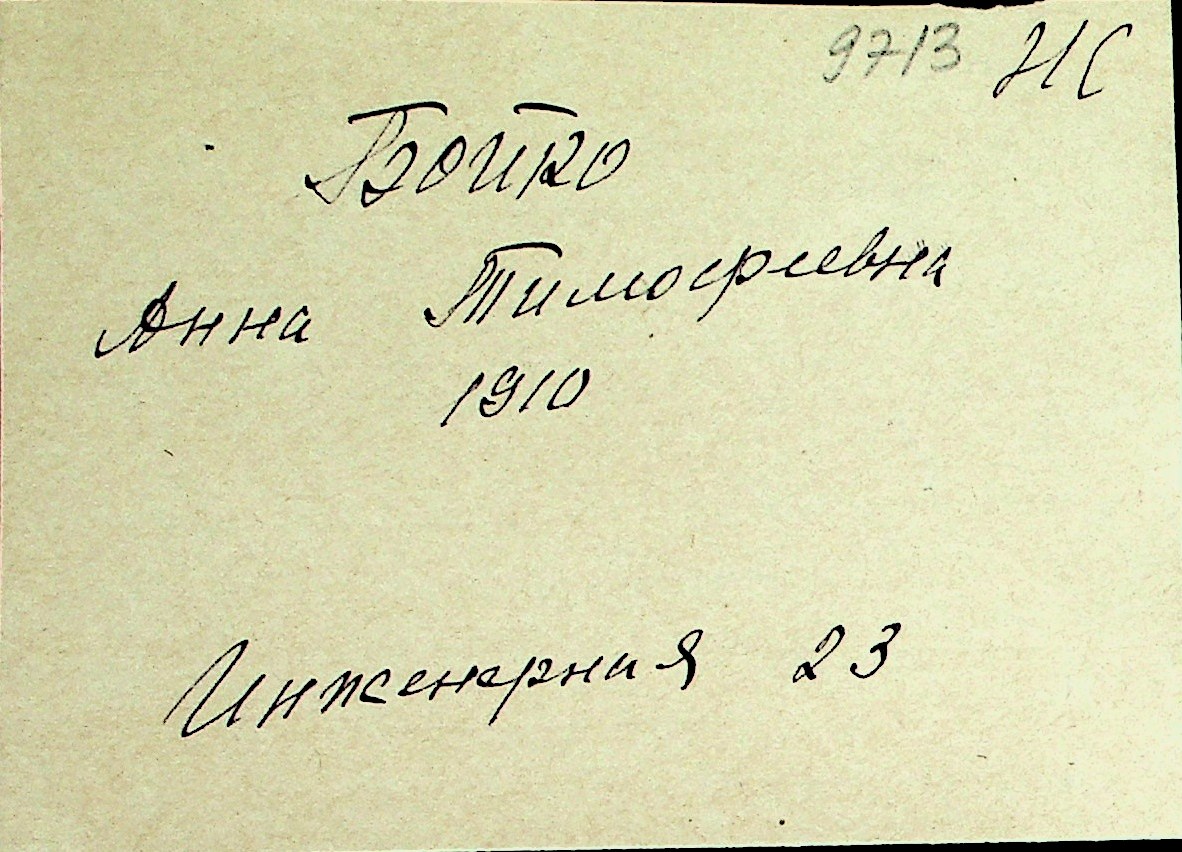 9713 НС
Бойко
Анна Тимофеевна
1910
Инженерная 23